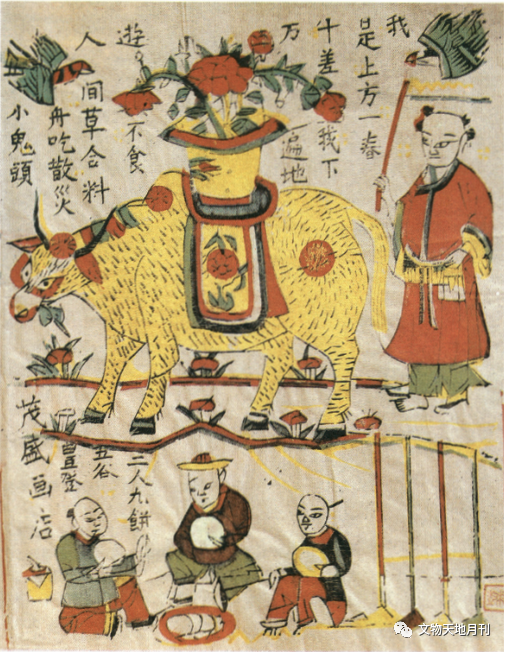 我
是上方一春
牛差我下
万
遍地
遊
不食
人
間草合料
舟吃散災
小鬼頭
二人九餅
五谷
豐登
茂盛画店
文物天地月刊